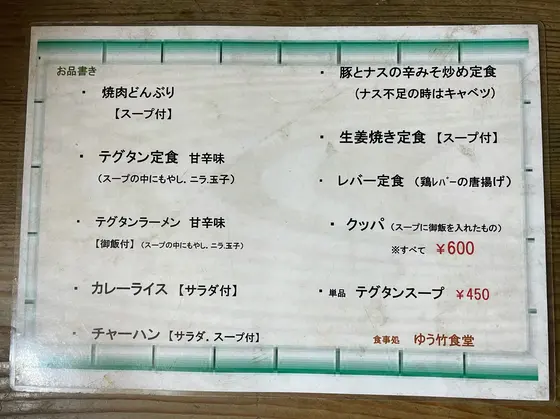 お品書き
・ 焼肉どんぶり
【スープ付】
・ テグタン定食 甘辛味
(スープの中にもやし、ニラ、玉子)
・ テグタンラーメン 甘辛味
【御飯付】(スープの中にもやし、ニラ、玉子)
・ カレーライス 【サラダ付】
・ チャーハン 【サラダ、スープ付】
・ 豚とナスの辛みそ炒め定食
(ナス不足の時はキャベツ)
・ 生姜焼き定食 【スープ付】
・ レバー定食 (鶏ﾚﾊﾞｰの唐揚げ)
・ クッパ (スープに御飯を入れたもの)
※すべて ¥600
・ 単品 テグタンスープ ¥450
食事処 ゆう竹食堂